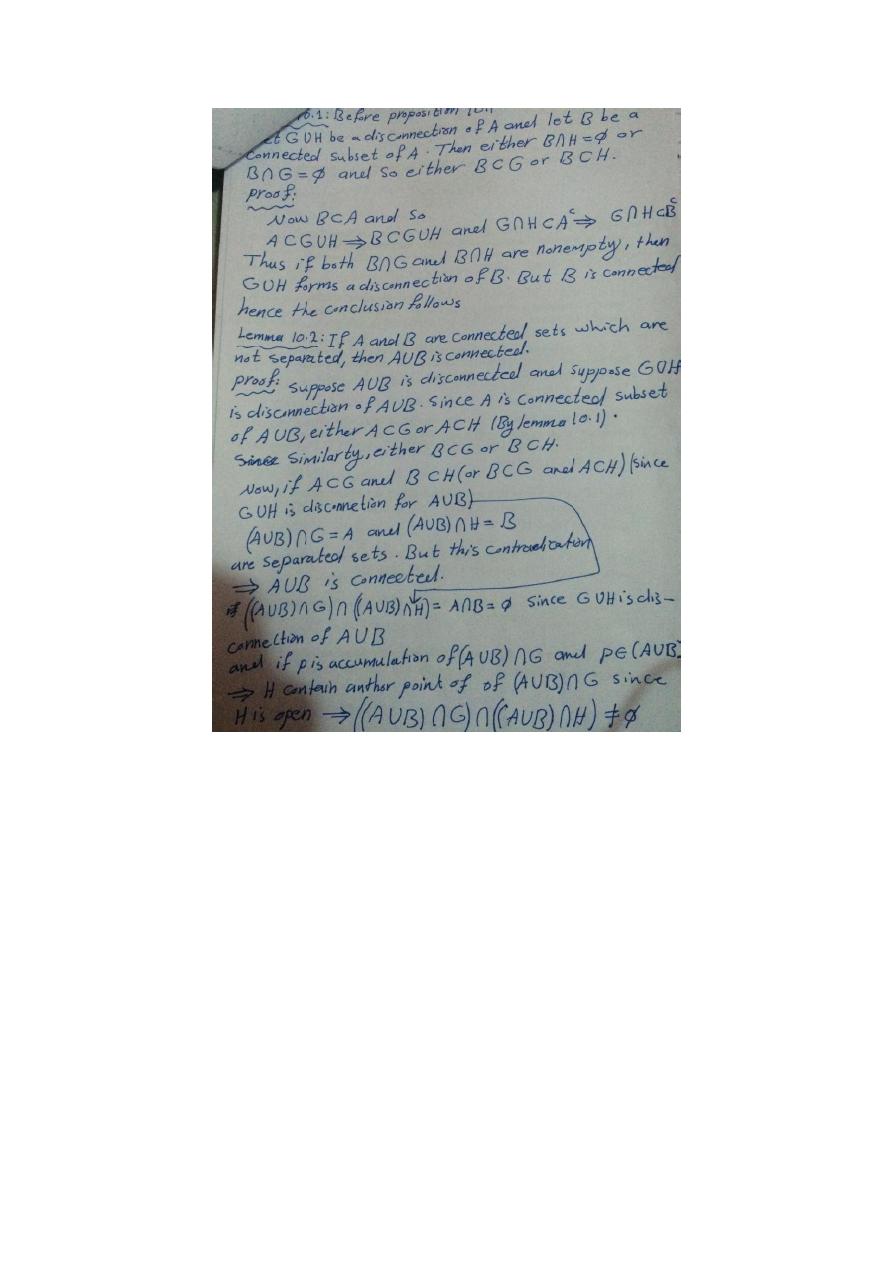 10.1: Before proposition
et G∪H be a disconnection of A and let B be a
connected subset of A. Then either B∩H=∅ or
B∩G=∅ and so either B⊂G or B⊂H.
proof:
Now B⊂A and so
A⊂G∪H ⇒ B⊂G∪H and G∩H⊂Aᶜ ⇒ G∩H⊂Bᶜ
Thus if both B∩G and B∩H are nonempty, then
G∪H forms a disconnection of B. But B is connected
hence the conclusion follows
Lemma 10.2: If A and B are connected sets which are
not separated, then A∪B is connected.
proof: suppose A∪B is disconnected and suppose G∪H
is disconnection of A∪B. Since A is connected subset
of A∪B, either A⊂G or A⊂H (By lemma 10.1).
Since Similarty, either B⊂G or B⊂H.
Now, if A⊂G and B⊂H (or B⊂G and A⊂H) (since
G∪H is disconnetion for A∪B)
(A∪B)∩G = A and (A∪B)∩H = B
are separated sets. But this contradication
⇒ A∪B is connected.
((A∪B)∩G)∩((A∪B)∩H) = A∩B = ∅ since G∪H is dis-
connection of A∪B
and if p is accumulation of (A∪B)∩G and p∈(A∪B)
⇒ H contain anthor point of of (A∪B)∩G since
H is open ⇒ ((A∪B)∩G)∩((A∪B)∩H) ≠ ∅